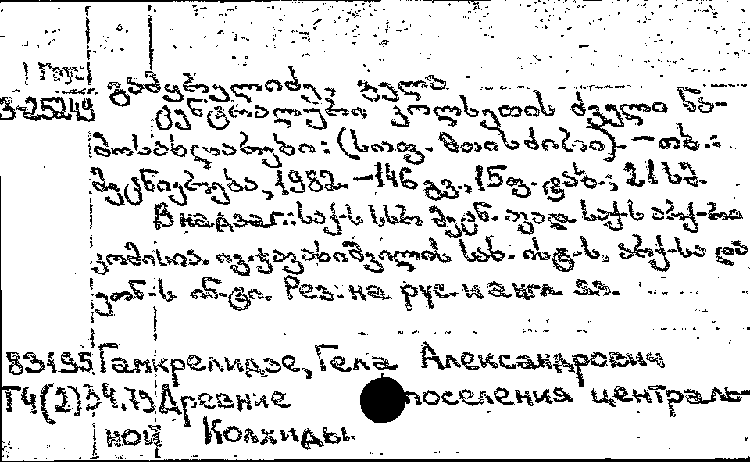 1 Груз
3-25249 გამყრელიძე, გელა
ცენტრალური კოლხეთის ძველი ნა-
მოსახლარები: (სოფ. მთისძირი). – თბ.:
მეცნიერება, 1982. – 146 გვ., 15 ფ. ტაბ.; 21 სმ.
В надзаг.: საქ-ს სსრ მეცნ. აკად. საქ-ს არქ-რი
კომისია. ივ. ჯავახიშვილის სახ. ისტ-ს, არქ-სა და
ეთნ-ს ინ-ტი. Рез. на рус. и англ. яз.
83195 Гамкрелидзе, Гела Александрович
T4(2)34.79 Древние поселения централь-
ной Колхиды.